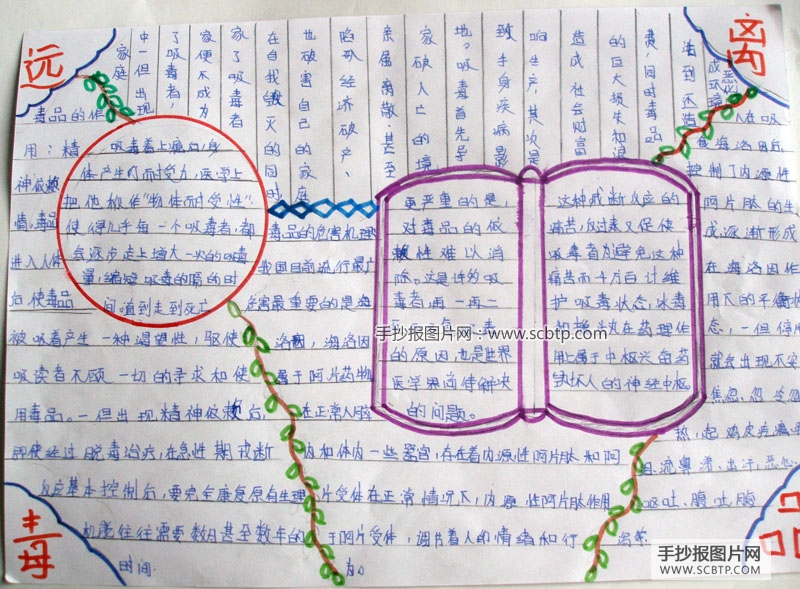 远
离
毒
品
家庭
中一但出现
了吸毒者，
家便不成为
家了吸毒者
在自我毁灭的同时
也破害自己的家庭
陷队经济破产、
亲属离散、甚至
家破人亡的境
地。吸毒首先导
致于身疾病影
响生产，其次是
造成社会财富
的巨大损失和浪
费，同时毒品
活到还造
成环境恶
毒品的作
用：精
神依赖
情。毒品
进入人体
后使毒品
被吸着产生一种渴望性，驱使
吸读者不顾一切的寻求和使
用毒品。一但出现精神依赖后，
即使经过脱毒治疾，在急性期戒断
反应基本控制后，要完全康复原有生理
机能往往需要数月甚至数年的
时间
一吸毒着上瘾
体产生了耐受力，医学上
把他称作“物体耐受性”
使得几乎每一个吸毒者，都
会逐步走上增大一次的吸毒
量，缩短吸毒的隔的时
间道到走到死亡
毒品的危害机理
我国目前流行最广
危害最重要的是海
洛因，海洛因
属于阿片药物
在正常人脑
内和体内一些器宫，存在着内源性阿片肽和阿
片受体在正常情况下，内原性阿片肽作用
于阿片受体，调节着人的情绪和行
为。
更严重的是，
对毒品的依
赖性难以消
除。这是许多吸
毒者再一再二
的原因也是世界
医学界尚待解决
的问题。
这种戒断反应的
痛苦，反过来又促使
吸毒者为避免这种
痛苦而千方百计维
护吸毒状态，冰毒
用上属于中枢兴奋药
缺坏人的神经中枢。
人在吸
食海洛因后
抑制了内源性
阿片肽的生
成逐渐形成
在海洛因作
用下的平衡
态，一但停用
就会出现不安
焦忽，忽冷忽
热，起鸡皮疙瘩
且流鼻涕、出汗，恶心
呕吐、腹吐腹
泻等
手抄报图片网：www.scbtp.com
手抄报图片网
WWW.SCBTP.COM